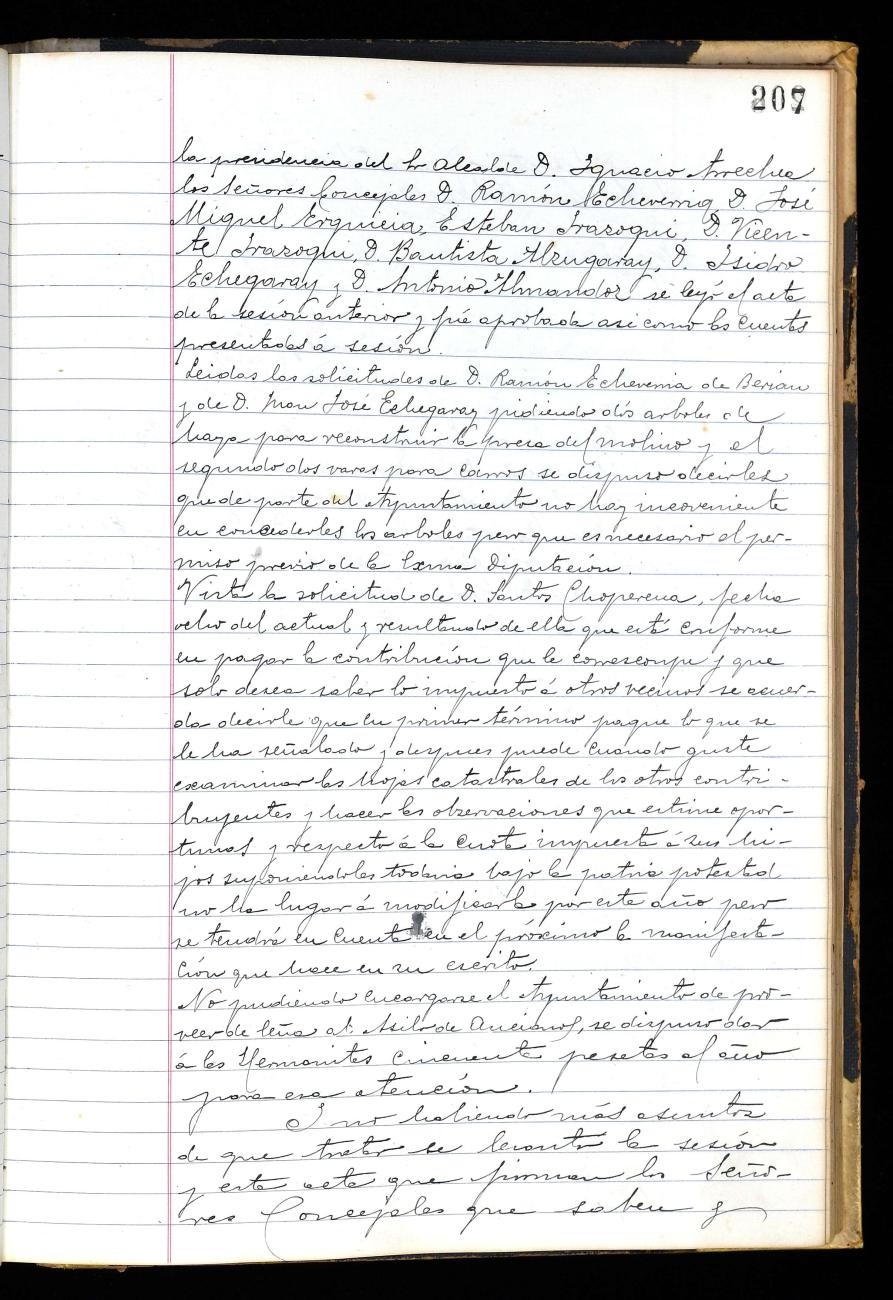 207
la presidencia del Sr Alcalde D. Ignacio Arrechea
los Señores Concejales D. Ramón Echeverria, D. José
Miguel Erquicia, Esteban Irazoqui, D. Vicen-
te Irazoqui, D. Bautista Alzugaray, D. Isidro
Echegaray y D. Antonio Almandoz se leyó el acta
de la sesión anterior y fué aprobada asi como las cuentas
presentadas á sesión.
Leidas las solicitudes de D. Ramón Echeverria de Berian
y de D. Juan José Echegaray pidiendo dós arboles de
haya para reconstruir la presa del molino y el
segundo dos varas para carros se dispuso decirles
que de parte del Ayuntamiento no hay incoveniente
en concederles los arboles pero que es necesario el per-
miso previo de la Exma Diputación.
Vista la solicitud de D. Santos Choperena, fecha
ocho del actual y resultando de ella que está conforme
en pagar la contribución que le corresponde y que
solo desea saber lo impuesto á otros vecinos se acuer-
da decirle que en primer término pague lo que se
le ha señalado y despues puede cuando guste
examinar las hojas catastrales de los otros contri-
buyentes y hacer las observaciones que estime opor-
tunas y respecto á la cuota impuesta á sus hi-
jos suponiendoles todavia bajo la patria potestad
no ha lugar á modificarla por este año pero
se tendrá en cuenta en el próximo la manifesta-
ción que hace en su escrito.
No pudiendo encargarse el Ayuntamiento de pro-
veer de leña al Asilo de Ancianos, se dispuso dar
á las Hermanitas cincuenta pesetas al año
para esa atención.
I no habiendo más asuntos
de que tratar se levantó la sesión
y esta acta que firman los Seño-
res Concejales que saben y